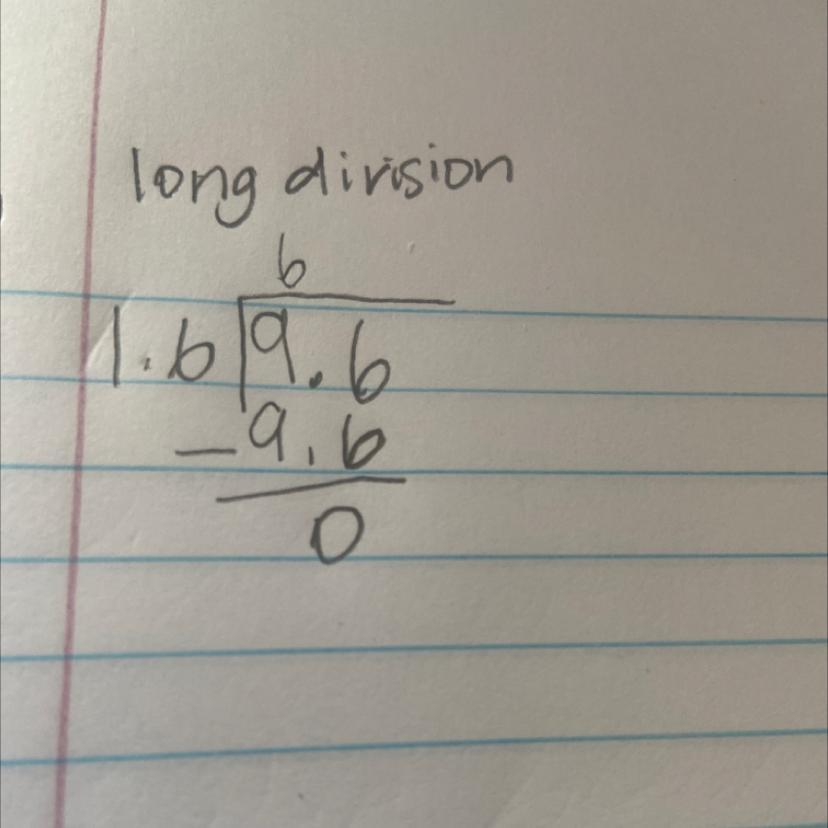 long division
6
1.6 9.6
-9.6
0